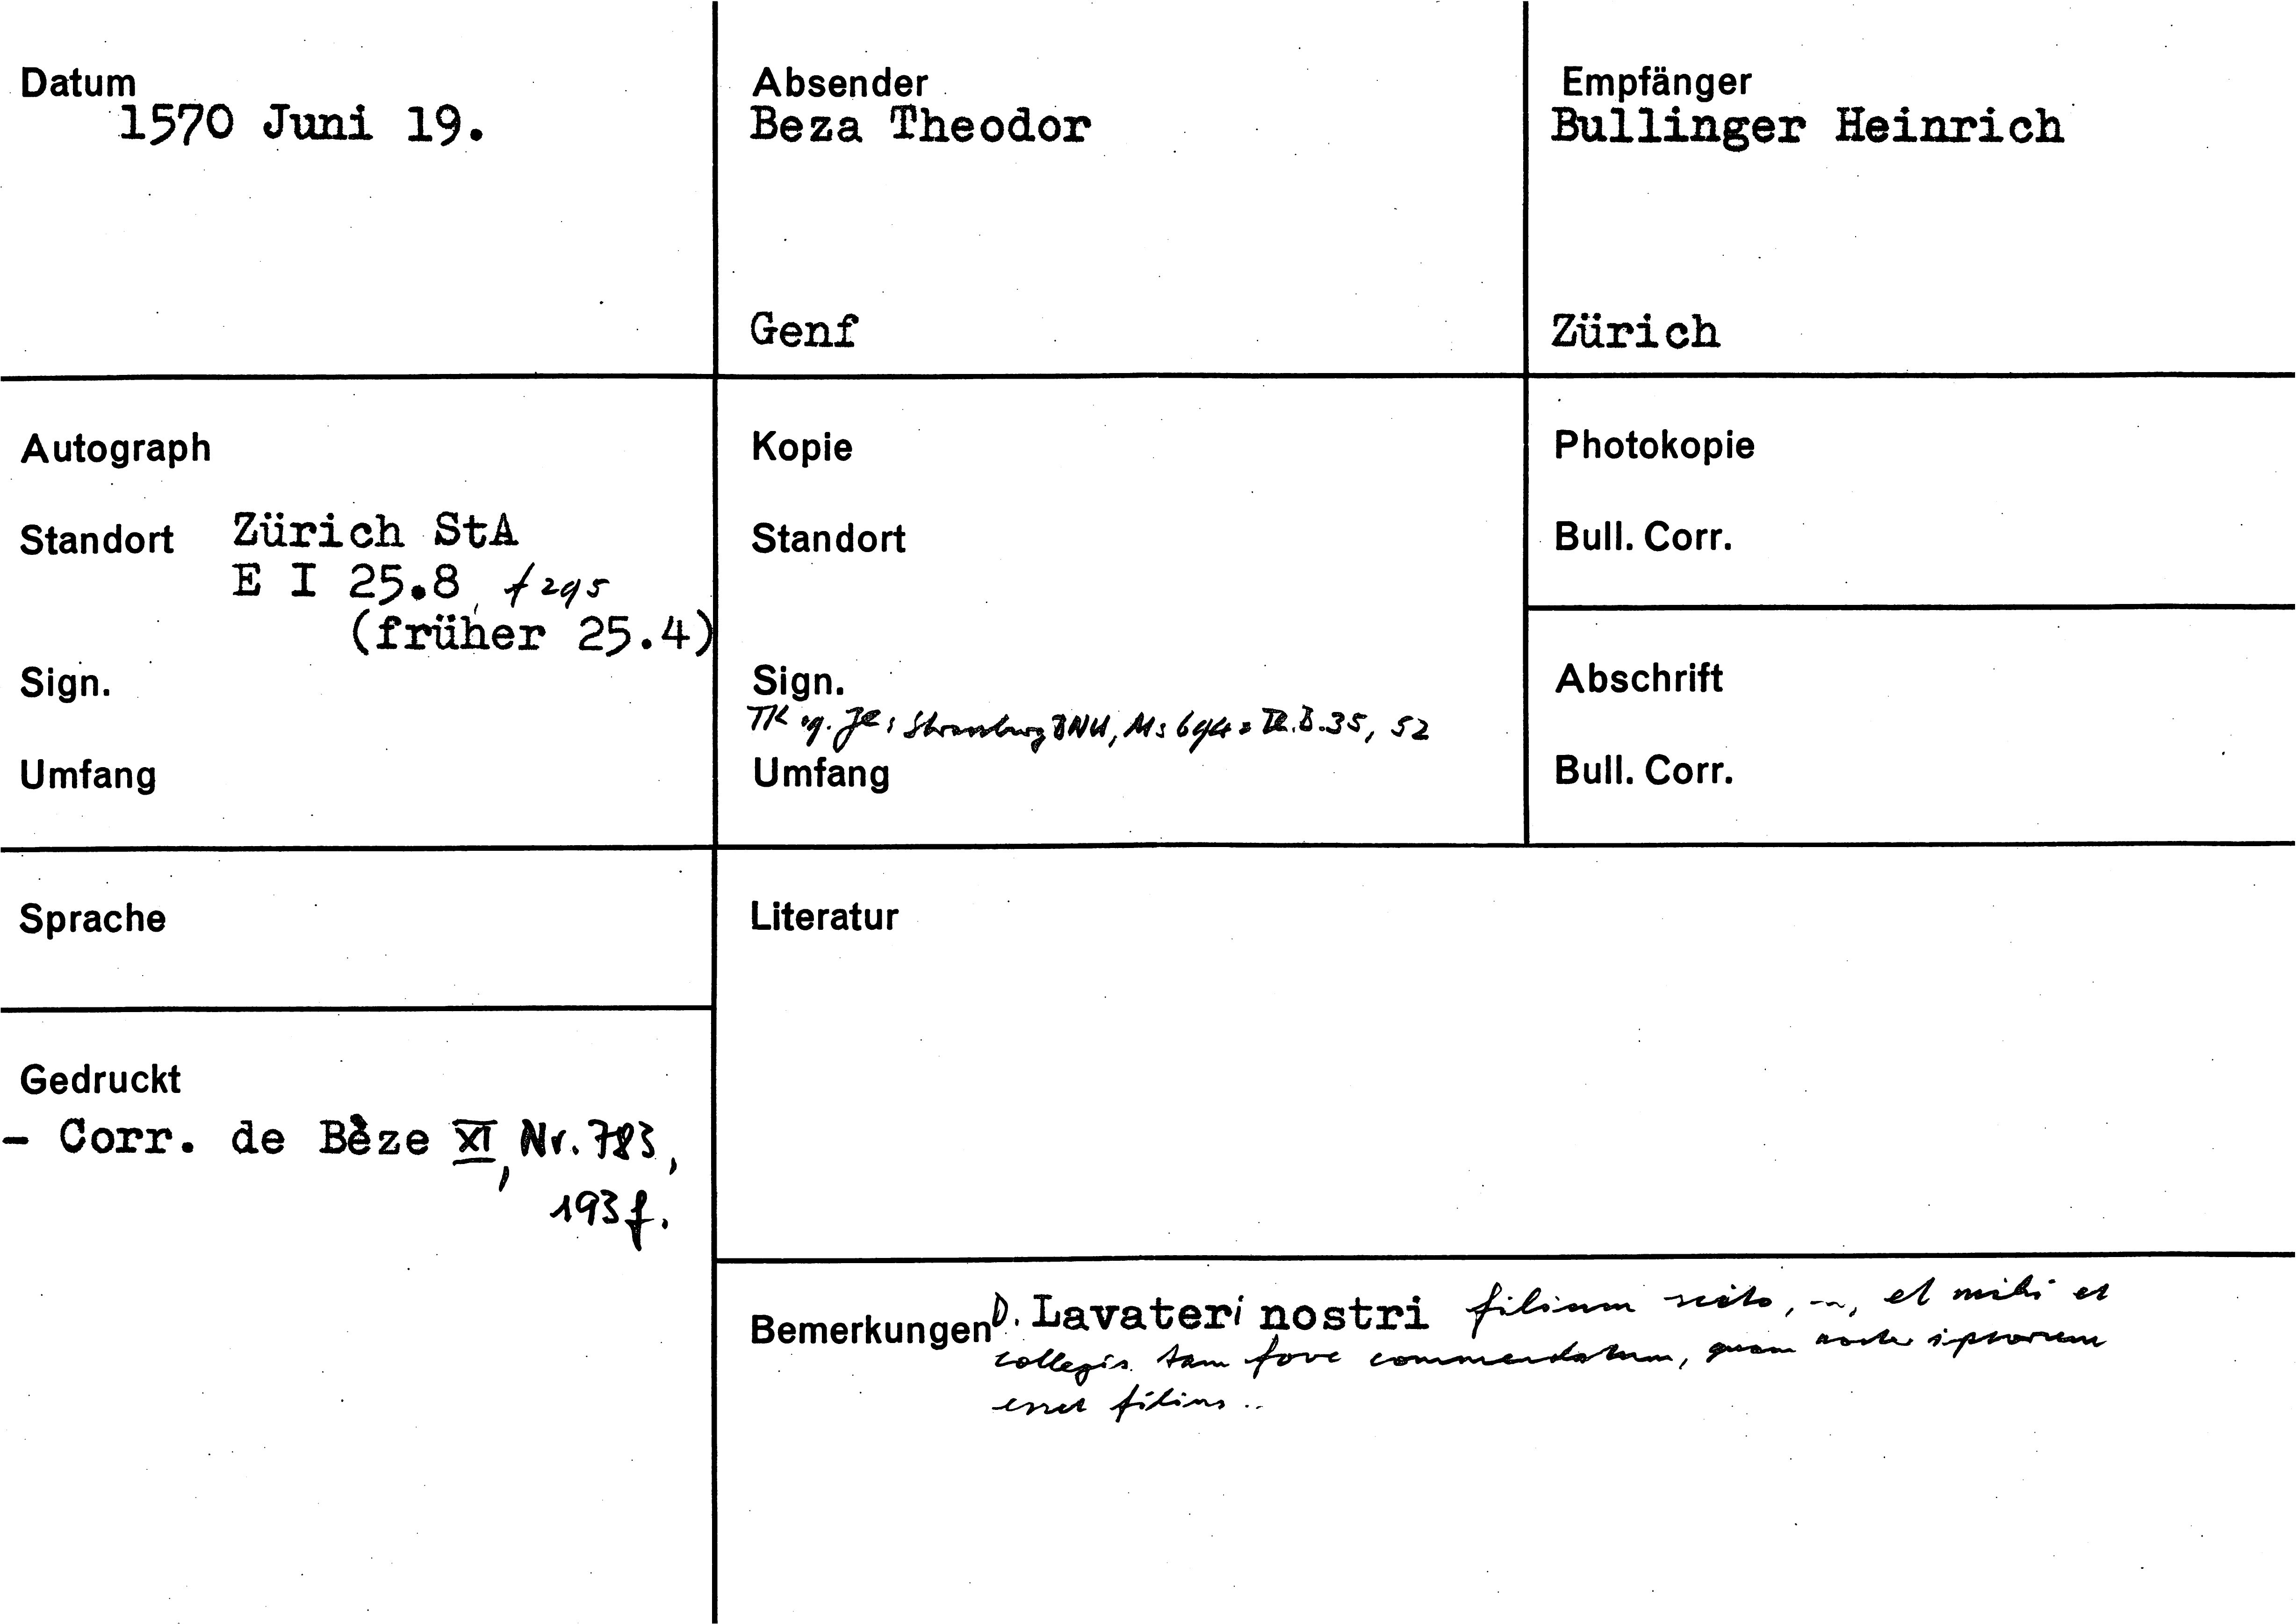 Datum
1570 Juni 19.
Absender
Beza Theodor
Genf
Empfänger
Bullinger Heinrich
Zürich
Autograph
Standort Zürich StA
E I 25.8, f 295
(früher 25.4)
Sign.
Umfang
Kopie
Standort
Sign.
Strassburg BNU, Ms 694 = 35, 52
Umfang
Photokopie
Bull. Corr.
Abschrift
Bull. Corr.
Sprache
Gedruckt
- Corr. de Bèze XI, Nr. 783,
193 f.
Literatur
Bemerkungen D. Lavateri nostri filium scito, ..., et mihi et
collegis tam fore commendatum, quam ipsorum
esset filius ..